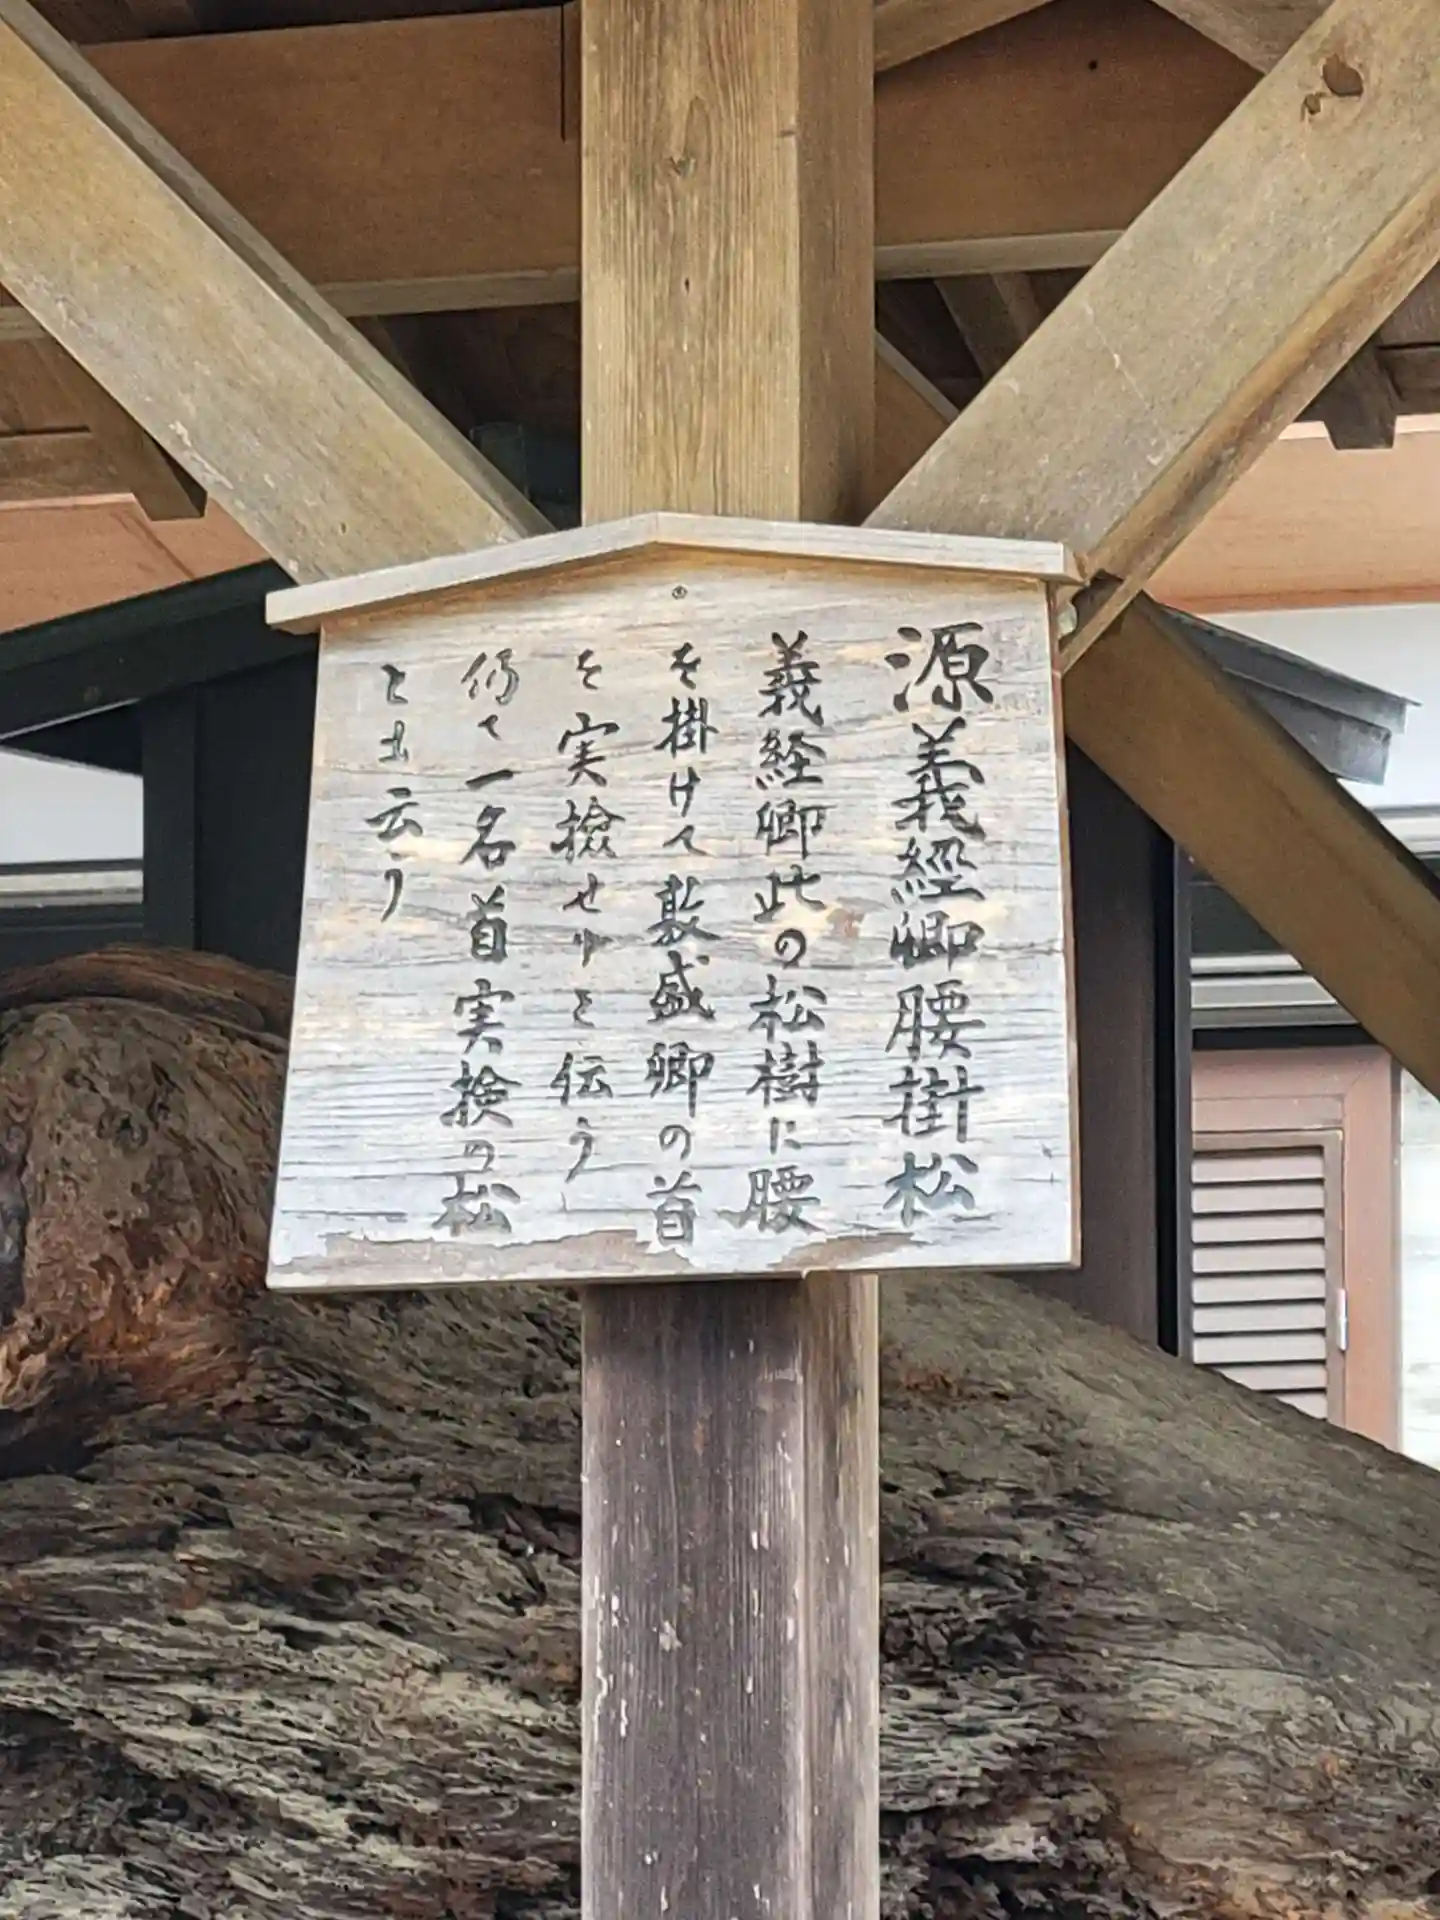 源義經卿腰掛松
義経卿此の松樹に腰
を掛けて敦盛卿の首
を実撿せりと伝う
仍て一名首実検の松
とも云う